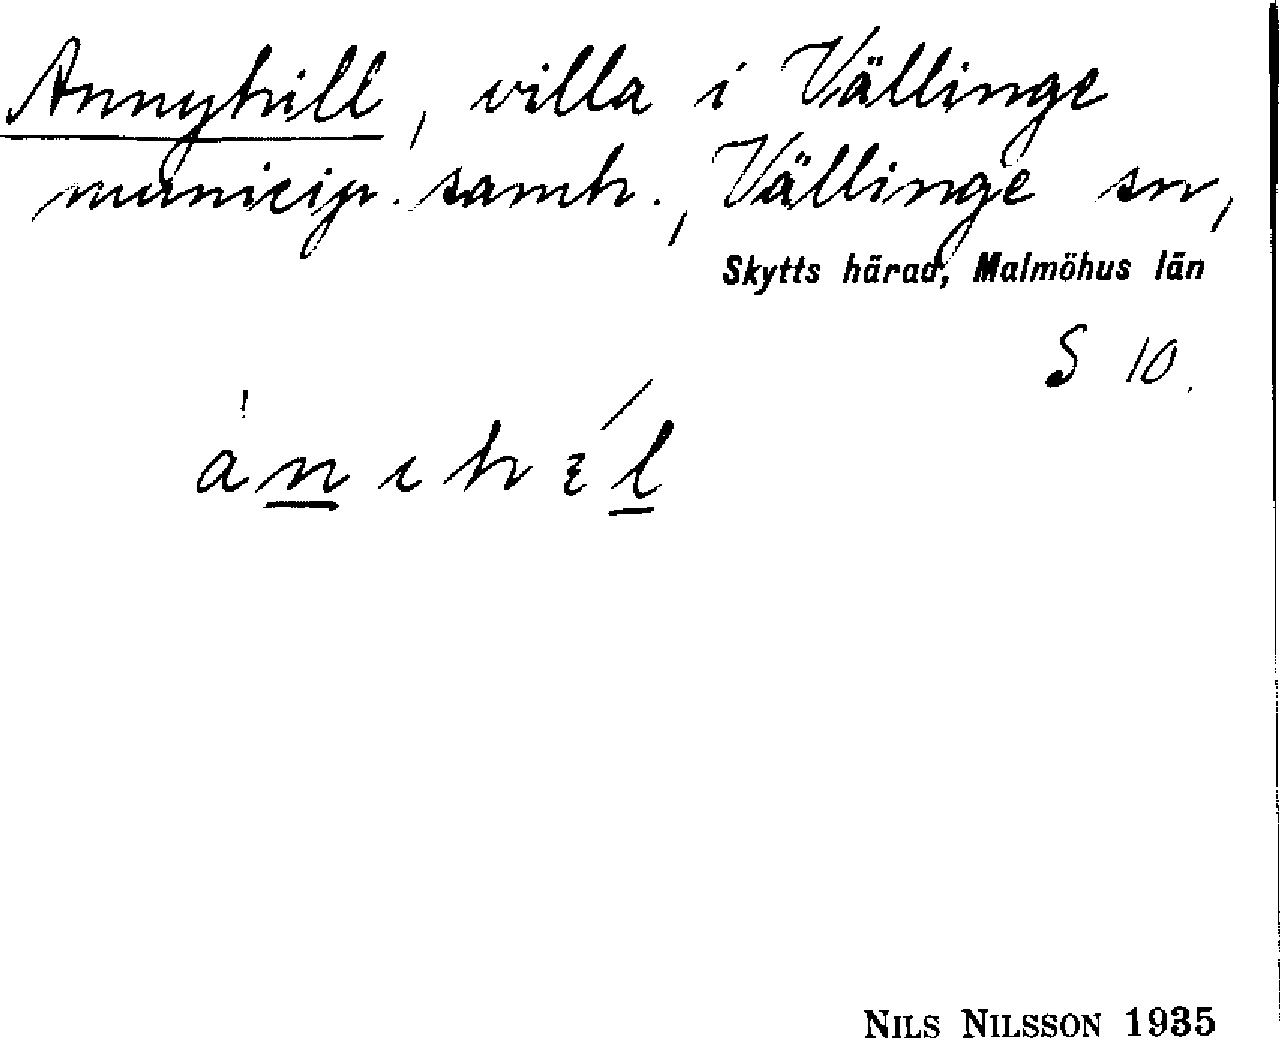 Annyhill, villa i Vällinge
municip. samh., Vällinge sn,
Skytts härad, Malmöhus län
S 10.
NILS NILSSON 1935